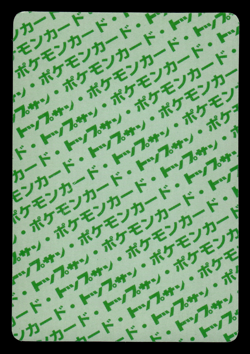 ポケモンカード・トップサン・ポケモンカード・
ポケモンカード・トップサン・ポケモンカード・
トップサン・ポケモンカード・トップサン・
ポケモンカード・トップサン・ポケモンカード・
トップサン・ポケモンカード・トップサン・
ポケモンカード・トップサン・ポケモンカード・
トップサン・ポケモンカード・トップサン・
ポケモンカード・トップサン・ポケモンカード・
トップサン・ポケモンカード・トップサン・
ポケモンカード・トップサン